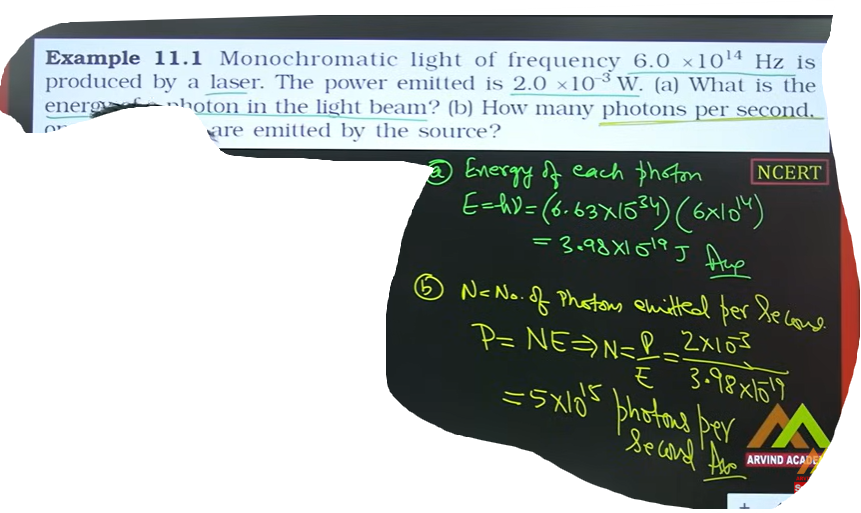 Example 11.1 Monochromatic light of frequency 6.0 ×10¹⁴ Hz is
produced by a laser. The power emitted is 2.0 ×10⁻³ W. (a) What is the
energy of a photon in the light beam? (b) How many photons per second,
are emitted by the source?
(a) Energy of each photon
NCERT
E=hν=(6.63×10⁻³⁴)(6×10¹⁴)
= 3.98×10⁻¹⁹ J Ans
(b) N= No. of Photons emitted per Second.
P= NE⇒N=P/E=2×10⁻³/3.98×10⁻¹⁹
=5×10¹⁵ photons per
Second Ans